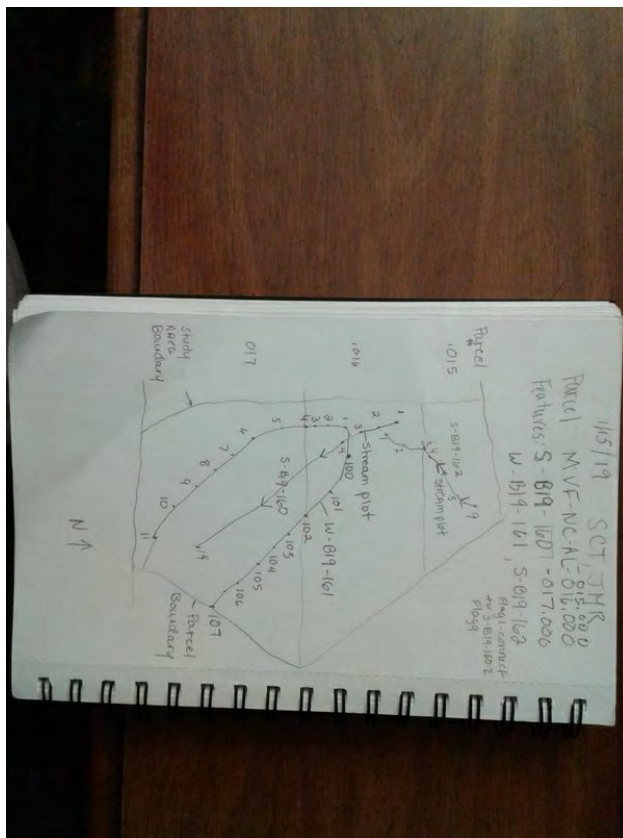 1/15/19 SCT, JMR
Parcel: MVF-NC-AL-015.000
016.000
-017.000
Features: S-B19-160
W-B19-161, S-B19-162
Flag 1-connect
to S-B19-160-2
Flag 9
Parcel
.015
.016
017
Study
Area
Boundary
S-B19-162
9
5
4
stream plot
1
1
2
3
stream plot
1
2
3
4
5
6
7
8
9
10
11
100
101
102
103
104
105
106
107
W-B19-161
S-B19-160
14
Parcel
Boundary
N ↑